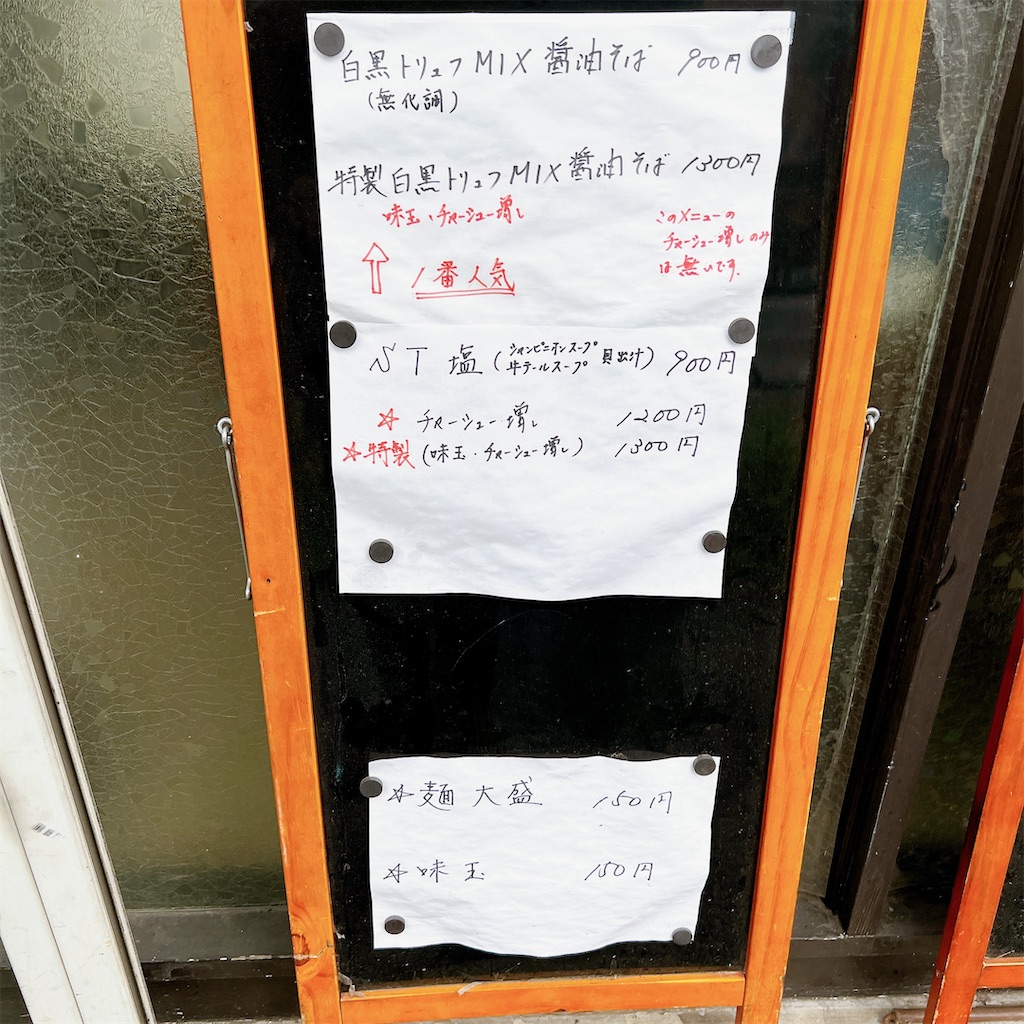 白黒トリュフMIX 醤油そば 900円
(無化調)
特製白黒トリュフMIX醤油そば 1300円
味玉・チャーシュー増し
このメニューの
チャーシュー増しのみ
は無いです.
1番人気
ST 塩 (シャンピニオンスープ 牛テールスープ 貝出汁) 900円
☆ チャーシュー増し 1200円
☆特製(味玉・チャーシュー増し) 1300円
☆麺大盛 150円
☆味玉 150円